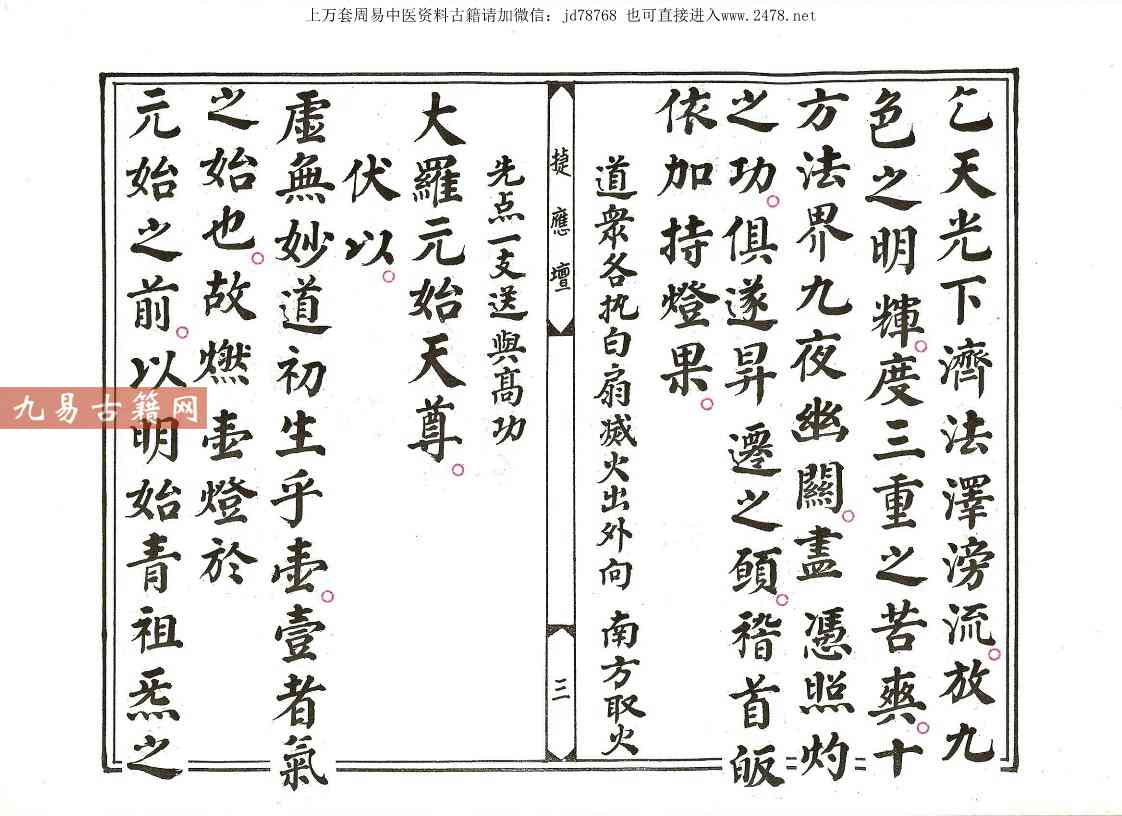 上万套周易中医资料古籍请加微信：jd78768 也可直接进入www.2478.net
乞天光下濟法澤滂流。放九
色之明輝。度三重之苦爽。十
方法界九夜幽關。盡憑照灼
之功。俱遂昇遷之願。稽首皈
依加持燈果。
道衆各执白扇滅火出外向 南方取火
捷應壇
三
先点一支送與高功
大羅元始天尊。
伏以。
虛無妙道初生乎壷。壹者氣
之始也。故燃壷燈於
元始之前。以明始青祖炁之
九易古籍网